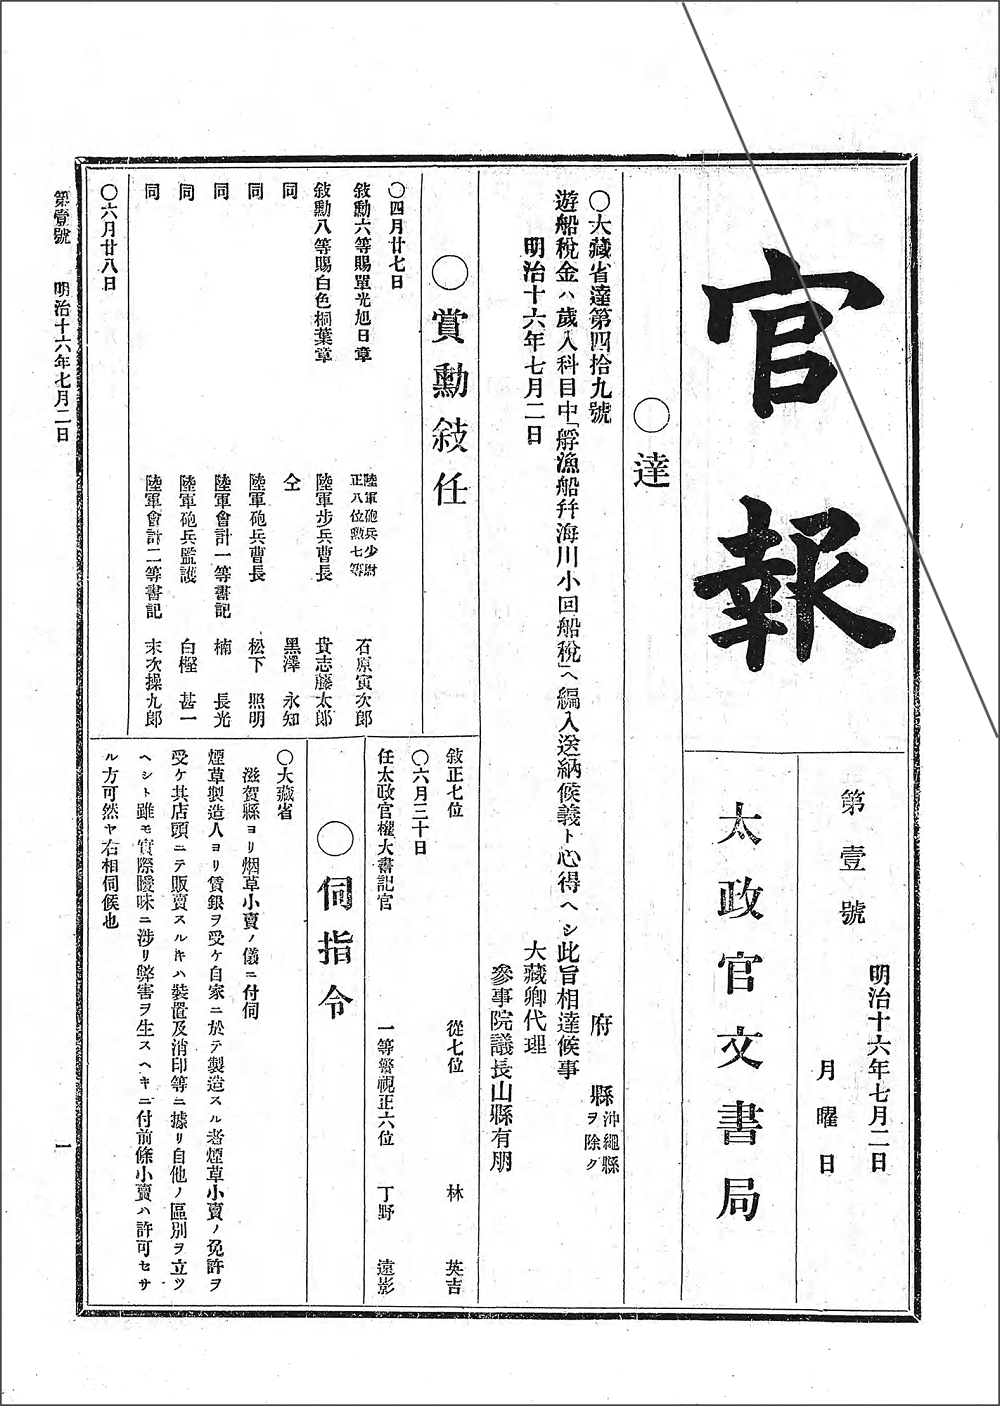 官報
第壹號
明治十六年七月二日
月曜日
太政官文書局
○達
○大藏省達第四拾九號
府縣沖繩縣ヲ除ク
遊船稅金ハ歲入科目中「艀漁船幷海川小回船稅」ヘ編入送納候義ト心得ヘシ此旨相達候事
明治十六年七月二日
大藏卿代理
參事院議長山縣有朋
○賞勳敍任
○四月廿七日
敍勳六等賜單光旭日章 陸軍砲兵少尉正八位勲七等 石原寅次郎
敍勳八等賜白色桐葉章 陸軍步兵曹長 貴志藤太郎
同 仝 黑澤永知
同 陸軍砲兵曹長 松下照明
同 陸軍會計一等書記 楠長光
同 陸軍砲兵監護 白樫甚一
同 陸軍會計二等書記 末次操九郎
○六月廿八日
敍正七位 從七位 林英吉
○六月三十日
任太政官權大書記官 一等警視正六位 丁野遠影
○伺指令
○大藏省
滋賀縣ヨリ烟草小賣ノ儀ニ付伺
煙草製造人ヨリ賃銀ヲ受ケ自家ニ於テ製造スル者煙草小賣ノ免許ヲ
受ケ其店頭ニテ販賣スルキハ裝置及消印等ニ據リ自他ノ區別ヲ立ツ
ヘシト雖モ實際曖昧ニ涉リ弊害ヲ生スヘキニ付前條小賣ハ許可セサ
ル方可然ヤ右相伺候也
第壹號 明治十六年七月二日
一